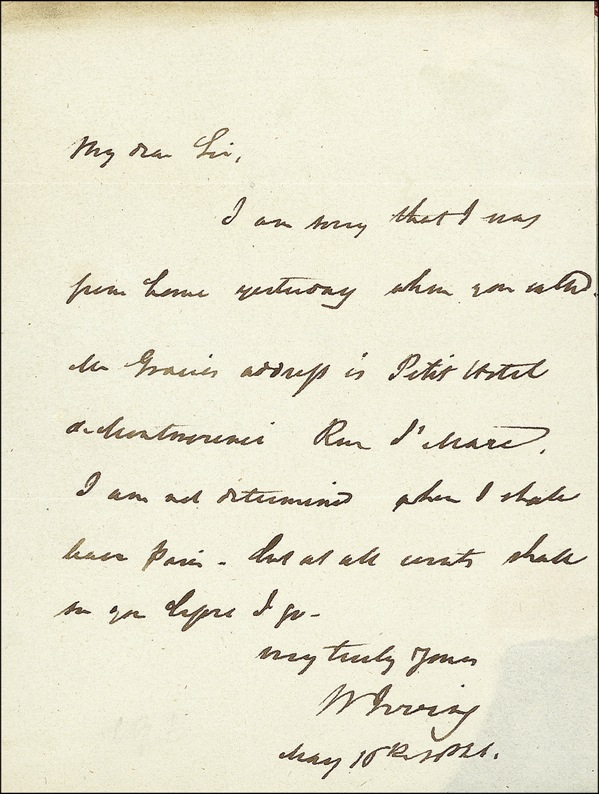 My dear Sir,
I am sorry that I was
from home yesterday when you called.
Mr Gracie's address is Petit Hotel
de Montmorenci Rue St Marc.
I am not determined when I shall
leave Paris - but at all events shall
see you before I go -
very truly yours
W Irving
May